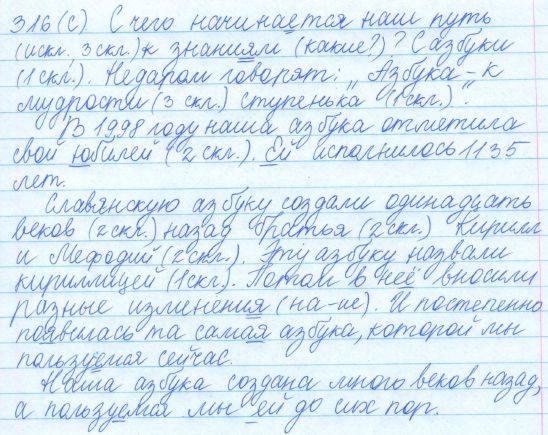 316(с) С чего начинается наш путь
(искл. 3 скл.) к знаниям (какие?)? С азбуки
(1 скл.). Недаром говорят: „Азбука – к
мудрости (3 скл.) ступенька (1 скл.)".
В 1998 году наша азбука отметила
свой юбилей (2 скл.). Ей исполнилось 1135
лет.
Славянскую азбуку создали одинадцать
веков (2 скл.) назад братья (2 скл.) Кирилл
и Мефодий (2 скл.). Эту азбуку назвали
кириллицей (1 скл.). Потом в неё вносили
разные изменения (на -ие). И постепенно
появилась та самая азбука, которой мы
пользуемся сейчас.
Наша азбука создана много веков назад,
а пользуемся мы ей до сих пор.